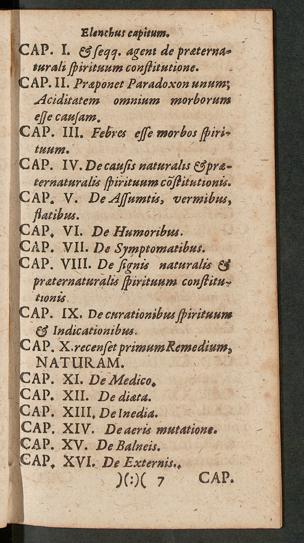 Elenchus capitum.
CAP. I. & seqq. agent de præterna-
turali spirituum constitutione.
CAP. II. Præponet Paradoxon unum;
Aciditatem omnium morborum
esse causam.
CAP. III. Febres esse morbos spiri-
tuum.
CAP. IV. De causis naturalis & præ-
ternaturalis spirituum cõstitutionis.
CAP. V. De Assumtis, vermibus,
flatibus.
CAP. VI. De Humoribus.
CAP. VII. De Symptomatibus.
CAP. VIII. De signis naturalis &
præternaturalis spirituum constitu-
tionis.
CAP. IX. De curationibus spirituum
& Indicationibus.
CAP. X. recenset primum Remedium,
NATURAM.
CAP. XI. De Medico.
CAP. XII. De diæta.
CAP. XIII. De Inedia.
CAP. XIV. De aeris mutatione.
CAP. XV. De Balneis.
CAP. XVI. De Externis.
)(:)( 7 CAP.